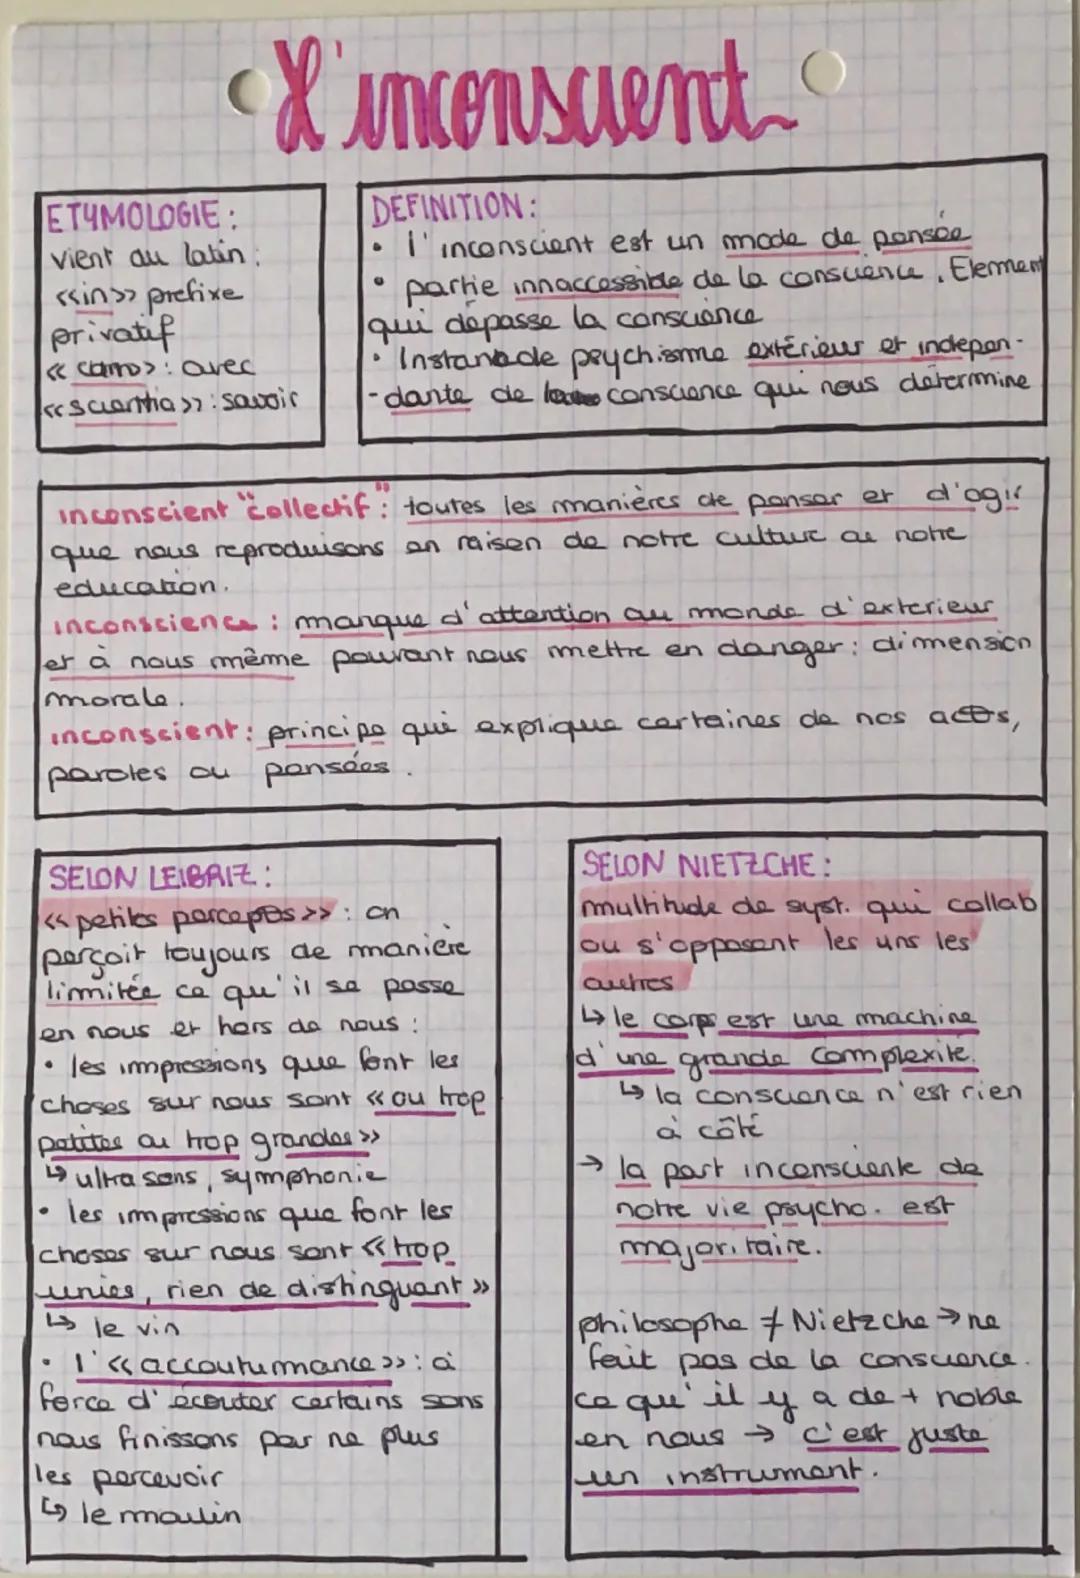 L'inconscient
ETYMOLOGIE :
vient du latin :
<<in>> prefixe
privatif
<<cum>> : avec
<<scientia>> : savoir
DEFINITION :
• l'inconscient est un mode de pensée
• partie innaccessible de la conscience. Element
qui dépasse la conscience
• Instance de psychisme extérieur et indepen-
-dante de conscience qui nous détermine
inconscient "collectif" : toutes les manières de penser et d'agir
que nous reproduisons en raison de notre culture ou notre
education.
inconscience : manque d'attention au monde d'exterieur
et à nous même pouvant nous mettre en danger : dimension
morale.
inconscient : principe qui explique certaines de nos actes,
paroles ou pensées.
SELON LEIBNIZ :
<<petites percept°s>> : on
perçoit toujours de manière
limitée ce qu'il se passe
en nous et hors de nous :
• les impressions que font les
choses sur nous sont <<ou trop
petites ou trop grandes>>
↳ ultra sons, symphonie
• les impressions que font les
choses sur nous sont <<trop
unies, rien de distinguant>>
↳ le vin
• l'<<accoutummance>> : à
force d'écouter certains sons
nous finissons par ne plus
les percevoir
↳ le moulin
SELON NIETZCHE :
multitude de syst. qui collab
ou s'opposent les uns les
autres
↳ le corps est une machine
d'une grande complexité.
↳ la conscience n'est rien
à côté
→ la part inconsciente de
notre vie psycho. est
majoritaire.
philosophe ≠ Nietzche → ne
fait pas de la conscience
ce qu'il y a de + noble
en nous → c'est juste
un instrument.